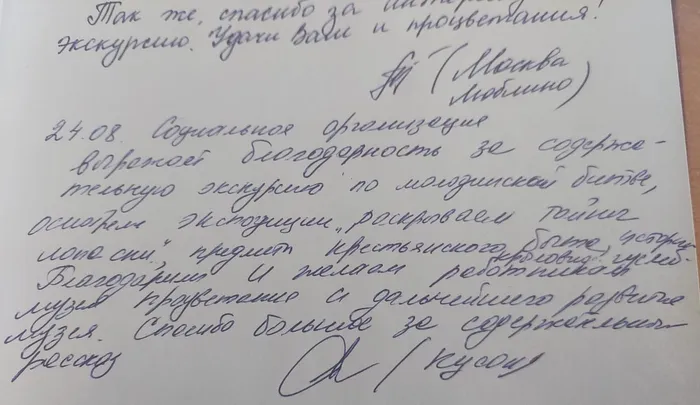 Так же, спасибо за
экскурсию. Удачи Вам и процветания!
(Москва
Люблино)
24.08. Социальное организация
выражает благодарность за содержа-
тельную экскурсию по молодинской битве,
осмотрели экспозиции „раскрываем тайны
лопасни", предметы крестьянского быта, истори
Благодарим и желаем работникам
музея процветание и дальнейшего развития
музея. Спасибо большое за содержательный
рассказ